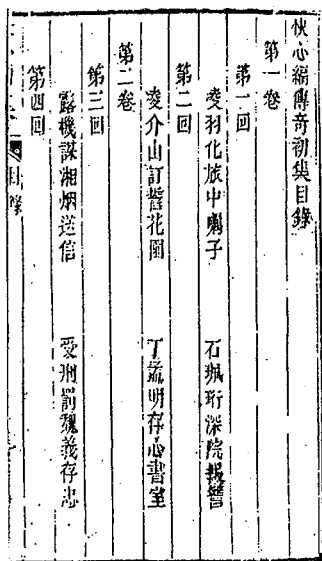 快心編傳奇初集目錄
第一卷
第一回
凌羽化旅中囑子　石珮珩深院報讐
第二回
凌介山訂誓花園　丁孟明存心書室
第二卷
第三回
露機謀湘烟送信　受刑罰魏義存忠
第四回
目錄